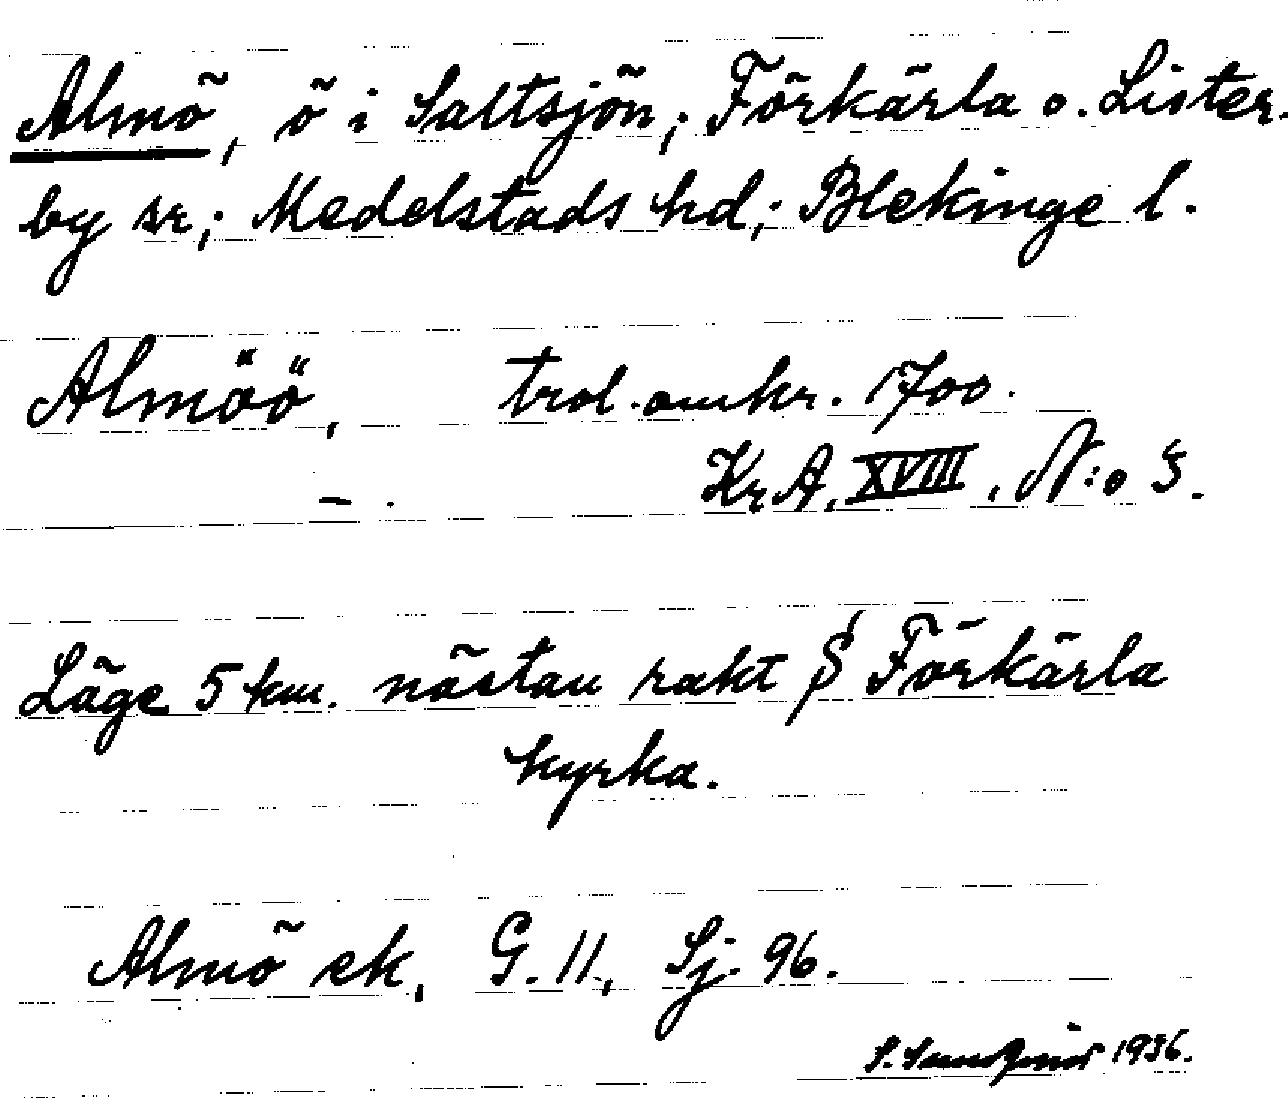 Almö, ö i Saltsjön; Förkärla o. Lister-
by sr; Medelstads hd; Blekinge l.
Almöö, trol. omkr. 1700.
– . Kr. A. XVIII, N:o 3.
Läge 5 km. nästan rakt S Förkärla
kyrka.
Almö ek, G. 11, Sj. 96.
S. 1936.